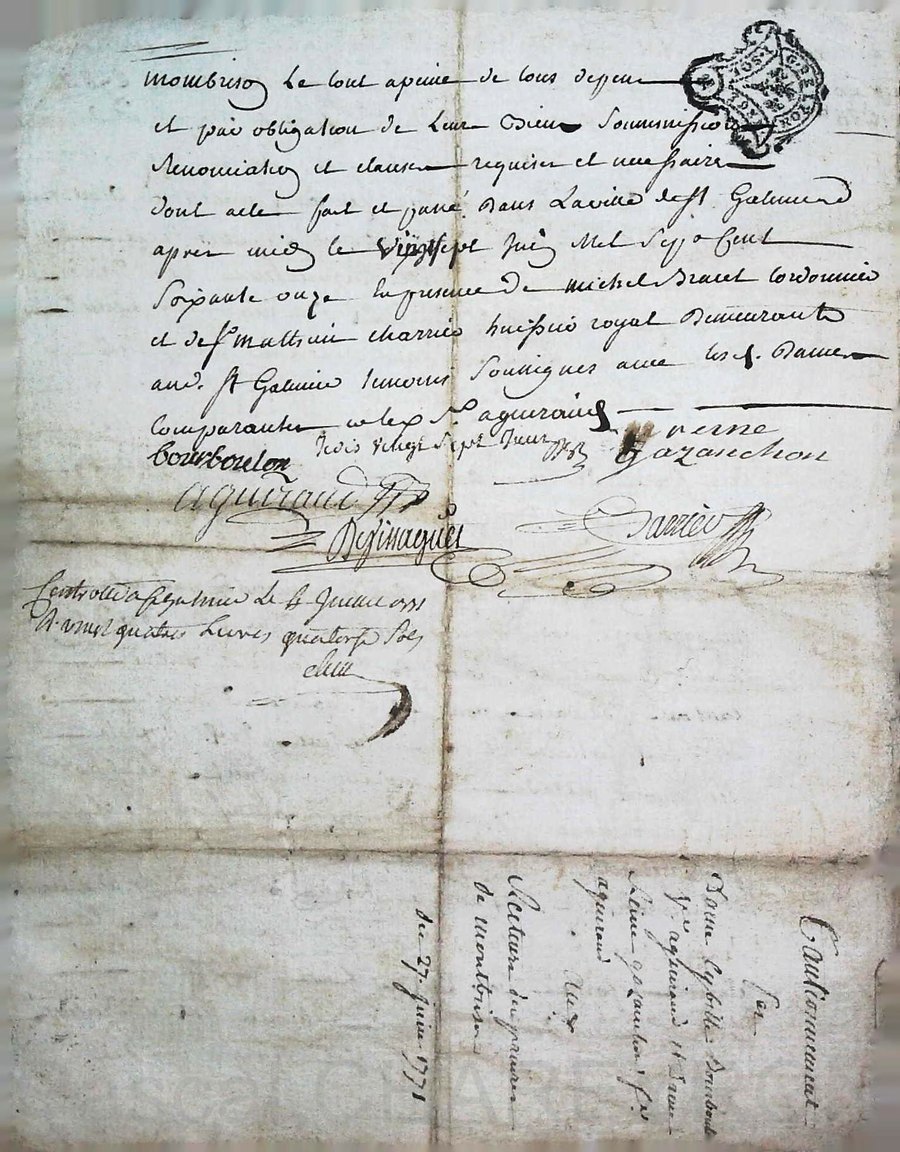 mombrison Le tout apeine de tous depens
et par obligation de Leurs Biens Soumissions
Renonciation et clauses requises et necessaires
Dont acte fait et passé Dans Laville de St Galmier
apres midy le vingt sept Juin Mil Sept Cent
Soixante onze En presence De michel Cordonnier
et de Sr mathieu charrier huissier royal Demeurants
aud. St Galmier temoins Soussignés avec les d. Dames
Comparantes et led. Sr aguiraud
bourboulon Jedis vingt Sept Juin Verne
Gazanchon
Aguiraud
Desinagues
Controllé a St galmier Le 4 Juillet 1771
R. vingt quatre Livres quatorze Sols
GRE LYON
Cautionnement
par
Dame Sybille Bourboulon
Sr aguiraud et Dame
verne gazanchon pr
aguiraud
Aux
Secteurs des prisons
de montbrison
du 27. juin 1771